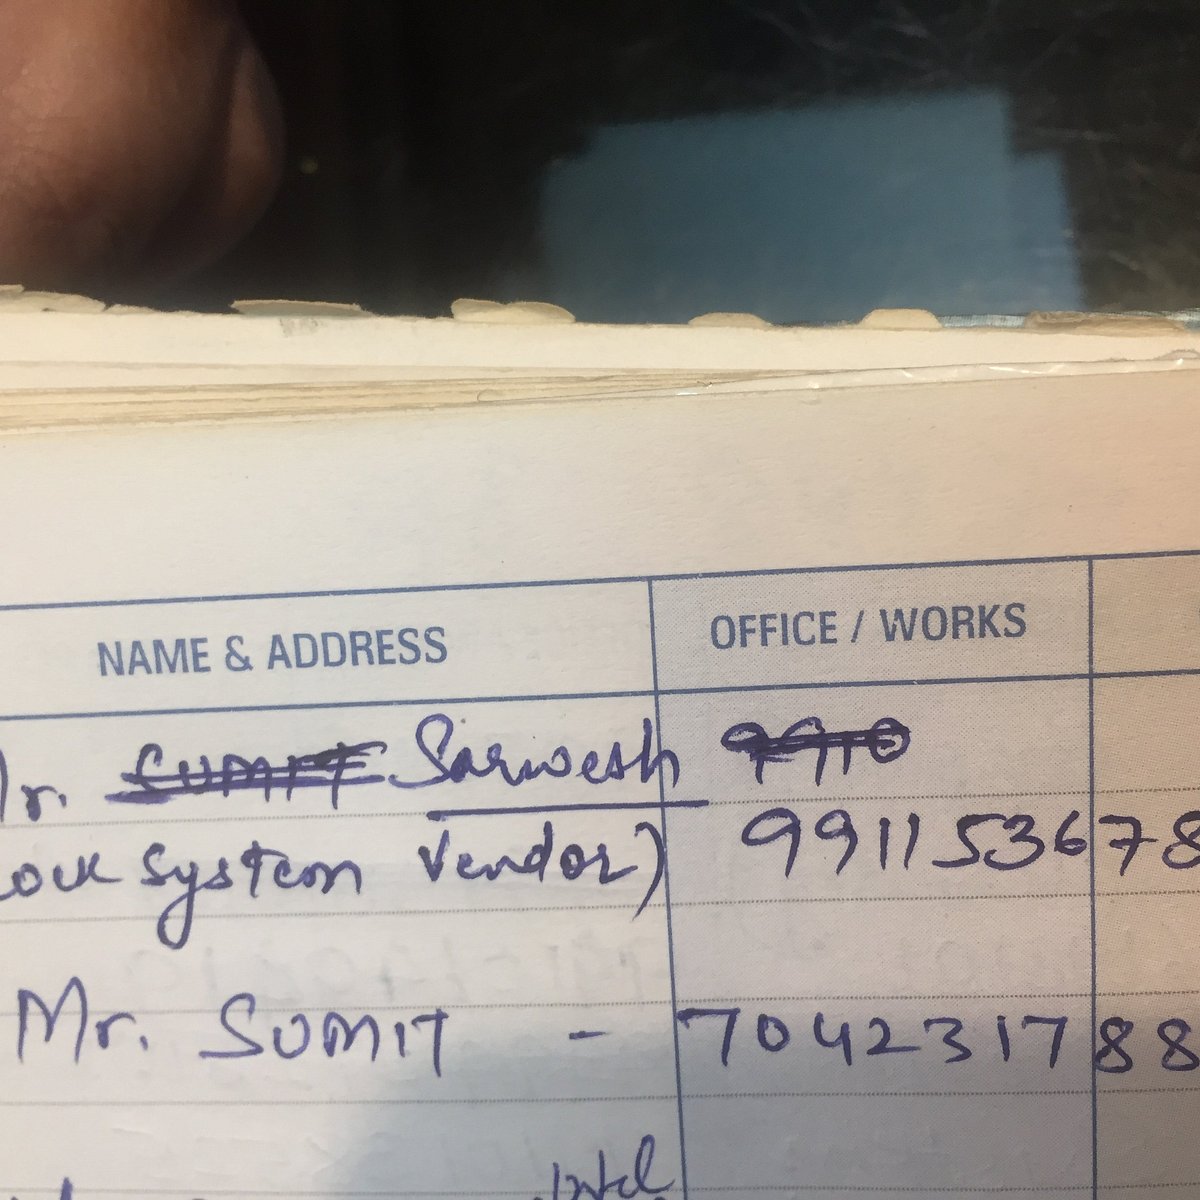 NAME & ADDRESS OFFICE / WORKS
Mr. SUMIT Sarwesh 9910
Lock System Vendor) 991153678
Mr. SUMIT - 7042317 88